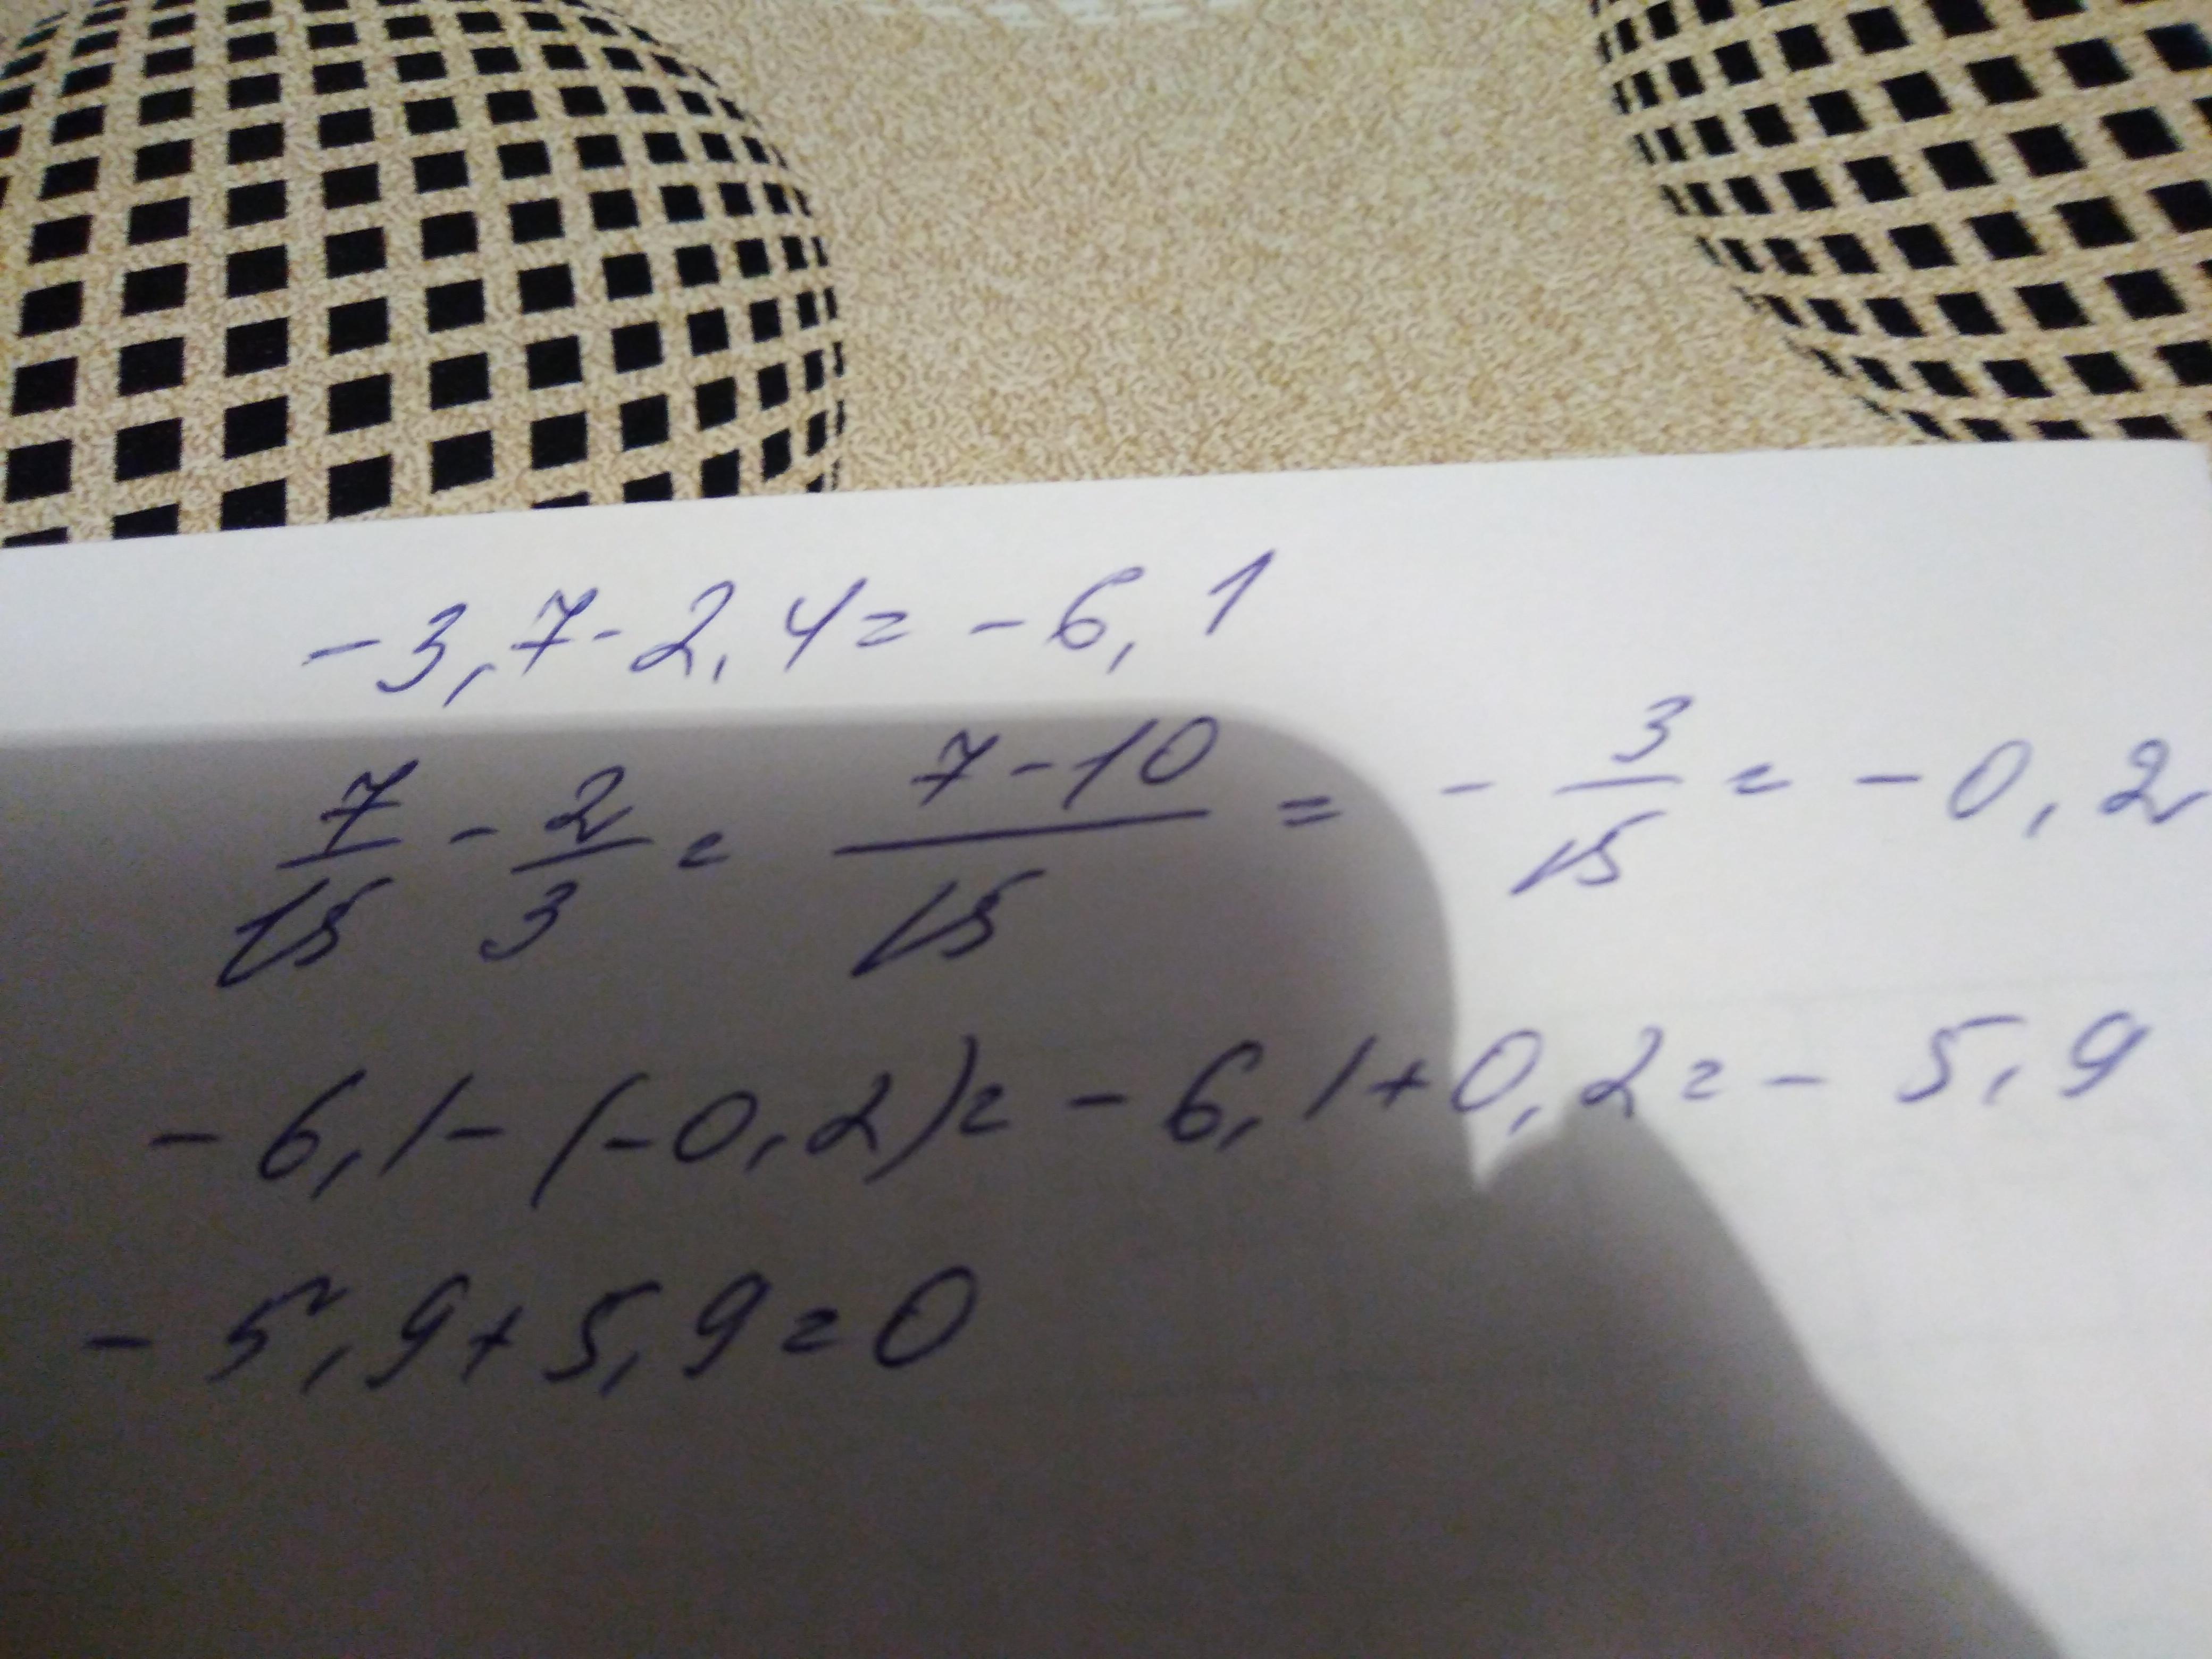 -3,7-2,4=-6,1
7/15 - 2/3 = 7-10/15 = - 3/15 = -0,2
-6,1-(-0,2)=-6,1+0,2=-5,9
-5,9+5,9=0